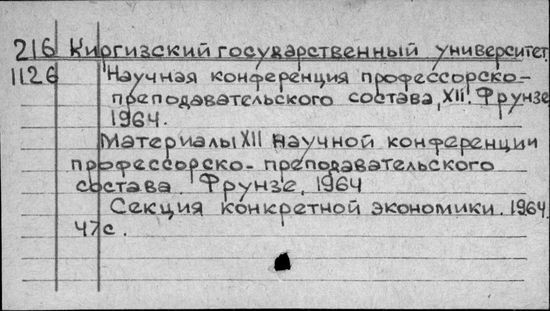 216 Киргизский государственный университет.
1126 Научная конференция профессорско-
преподавательского состава, XII. Фрунзе
1964.
Материалы XII научной конференции
профессорско-преподавательского
состава. Фрунзе, 1964
Секция конкретной экономики. 1964.
47с.